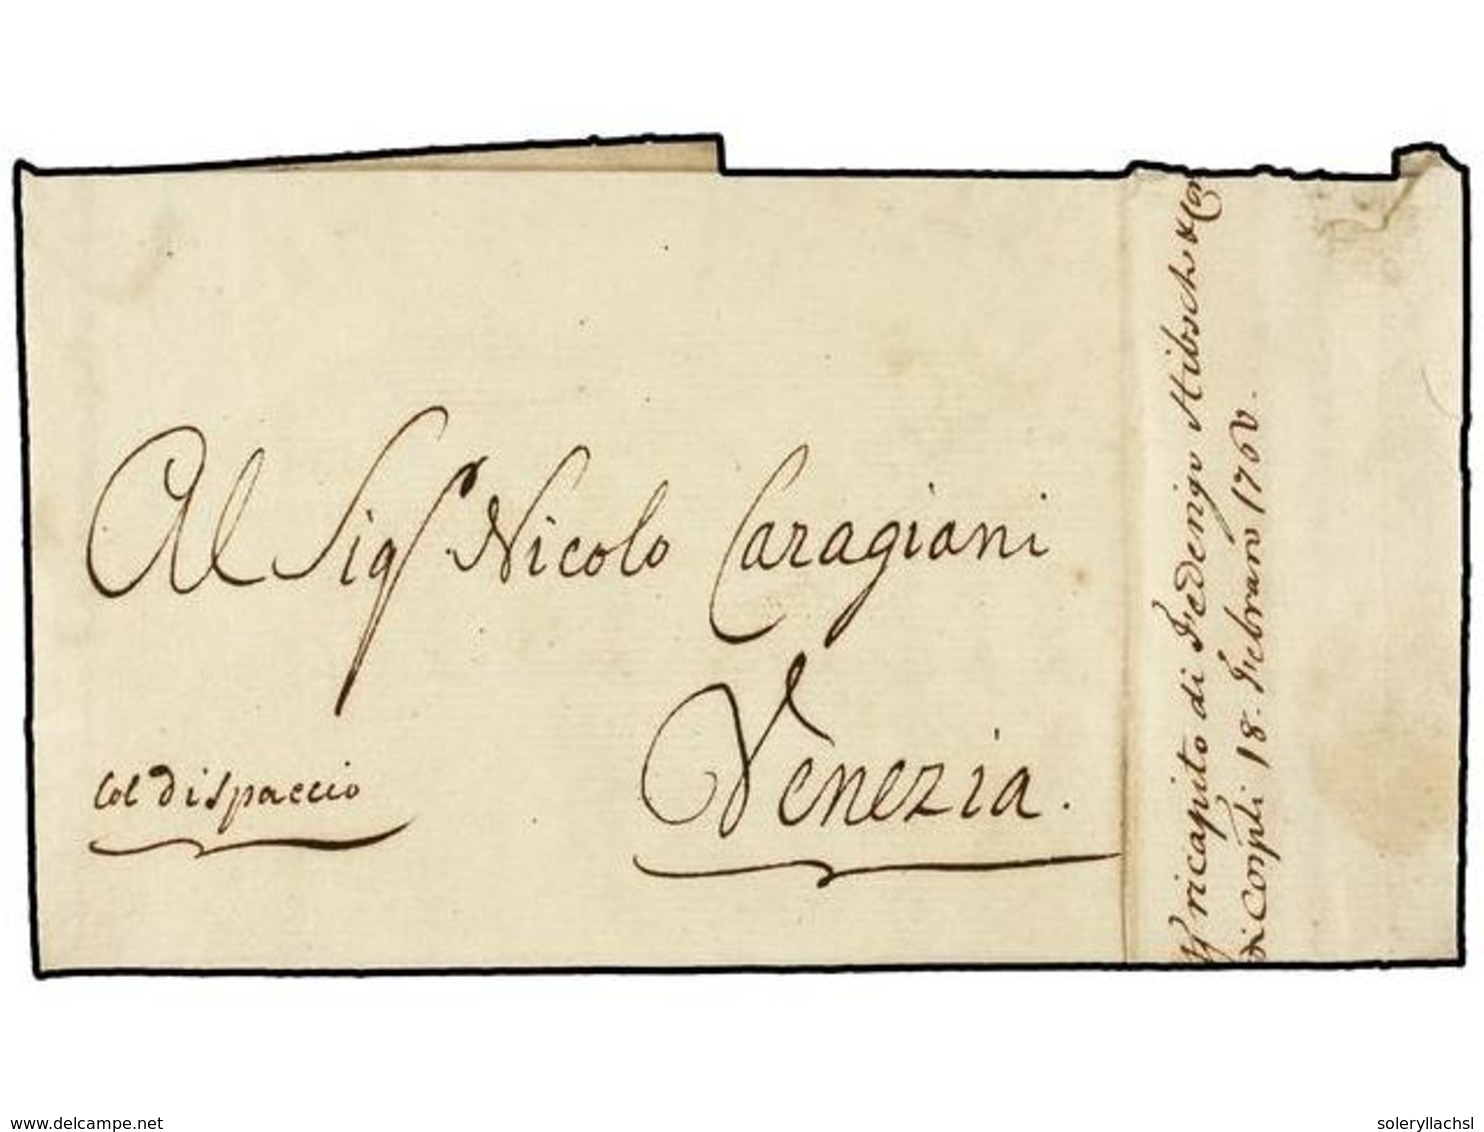 Al Sigr Nicolo Caragiani
Venezia.
Col dispaccio
ricapito di Federigo Hibsch &
di Conpli 18. Febraro 176
delcampe.net
soleryllachsl